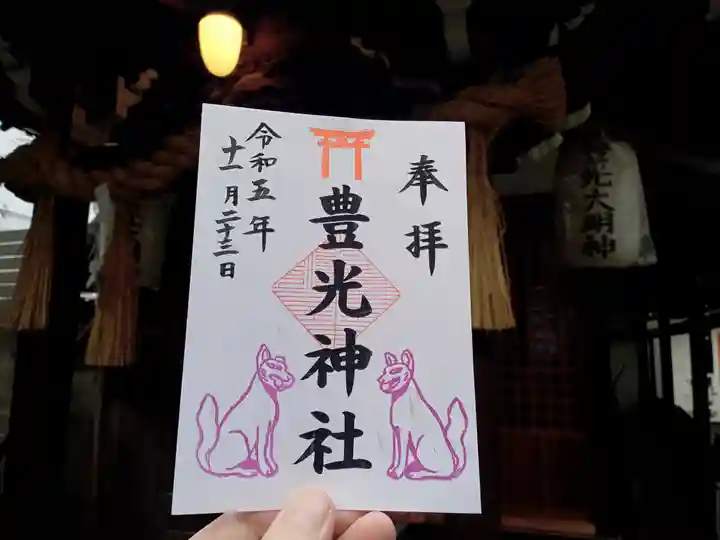 奉拝
豊光神社
令和五年
十一月二十三日
豊光大明神